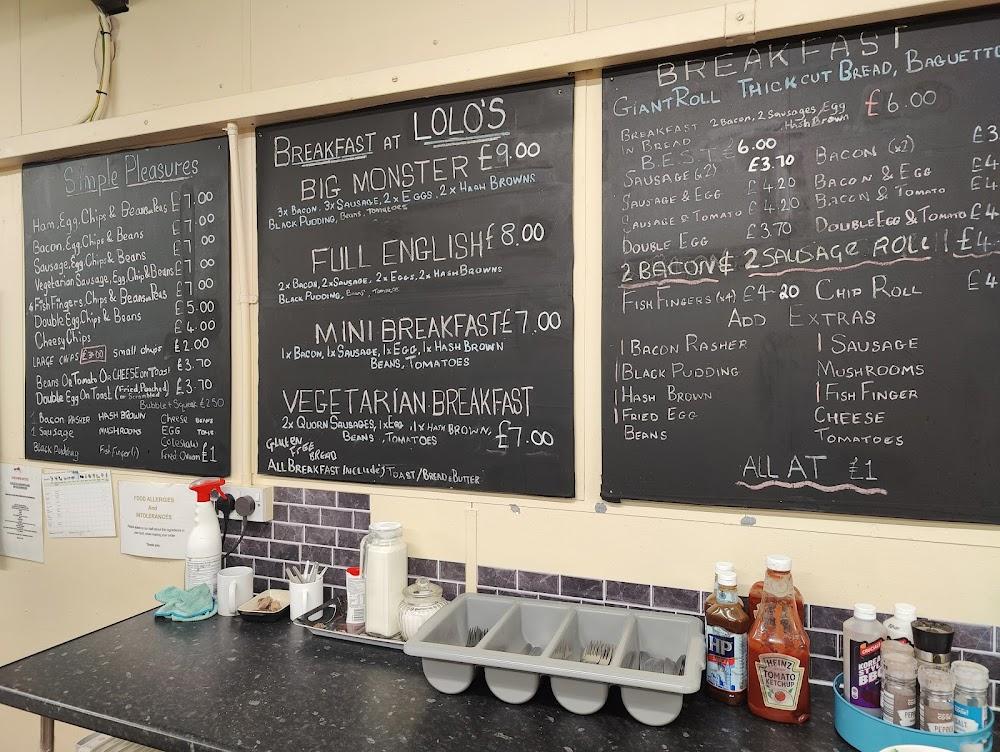 Simple Pleasures
Ham, Egg, Chips & Beans or Peas £7.00
Bacon, Egg, Chips & Beans £7.00
Sausage, Egg, Chips & Beans £7.00
Vegetarian Sausage, Egg, Chip & Beans £7.00
4 Fish Fingers, Chips & Beans or Peas £7.00
Double Egg, Chips & Beans £5.00
Cheesy Chips £4.00
LARGE CHIPS £3.00 small chips £2.00
Beans Or Tomato Or CHEESE on Toast £3.70
Double Egg On Toast (Fried, Poached or Scrambled) £3.70
Bubble + Squeak £2.50
1 Bacon RASHER HASH BROWN Cheese BEANS
1 Sausage MUSHROOMS EGG TOMS
Black Pudding Fish Finger (1) Coleslaw
Fried Onion £1
BREAKFAST AT LOLO'S
BIG MONSTER £9.00
3x BACON, 3x SAUSAGE, 2x EGGS, 2x HASH BROWNS
BLACK PUDDING, Beans, Tomatoes
FULL ENGLISH £8.00
2x BACON, 2x SAUSAGE, 2x EGGS, 2x HASH BROWNS
BLACK PUDDING, Beans, Tomatoes
MINI BREAKFAST £7.00
1x BACON, 1x SAUSAGE, 1x EGG, 1x HASH BROWN
BEANS, TOMATOES
VEGETARIAN BREAKFAST
2x QUORN SAUSAGES, 1x EGG, 1x HASH BROWN,
BEANS, TOMATOES £7.00
GLUTEN FREE BREAD
ALL BREAKFAST Include's TOAST/BREAD & BUTTER
BREAKFAST
GIANT ROLL THICK CUT BREAD, BAGUETTE
BREAKFAST IN BREAD 2 Bacon, 2 Sausages, Egg Hash Brown £6.00
B.E.S.T £6.00
SAUSAGE (x2) £3.70 BACON (x2) £3
SAUSAGE & EGG £4.20 BACON & EGG £4
SAUSAGE & TOMATO £4.20 BACON & TOMATO £4
DOUBLE EGG £3.70 DOUBLE EGG & TOMATO £4
2 BACON & 2 SAUSAGE ROLL £4
FISH FINGERS (x4) £4-20 CHIP ROLL £4
ADD EXTRAS
1 BACON RASHER 1 SAUSAGE
1 BLACK PUDDING MUSHROOMS
1 HASH BROWN 1 FISH FINGER
1 FRIED EGG CHEESE
BEANS TOMATOES
ALL AT £1
FOOD ALLERGIES
And
INTOLERANCES
Thank you
HP
HEINZ
TOMATO
KETCHUP
KOREAN
STYLE
BBQ
PEPPER
SALT